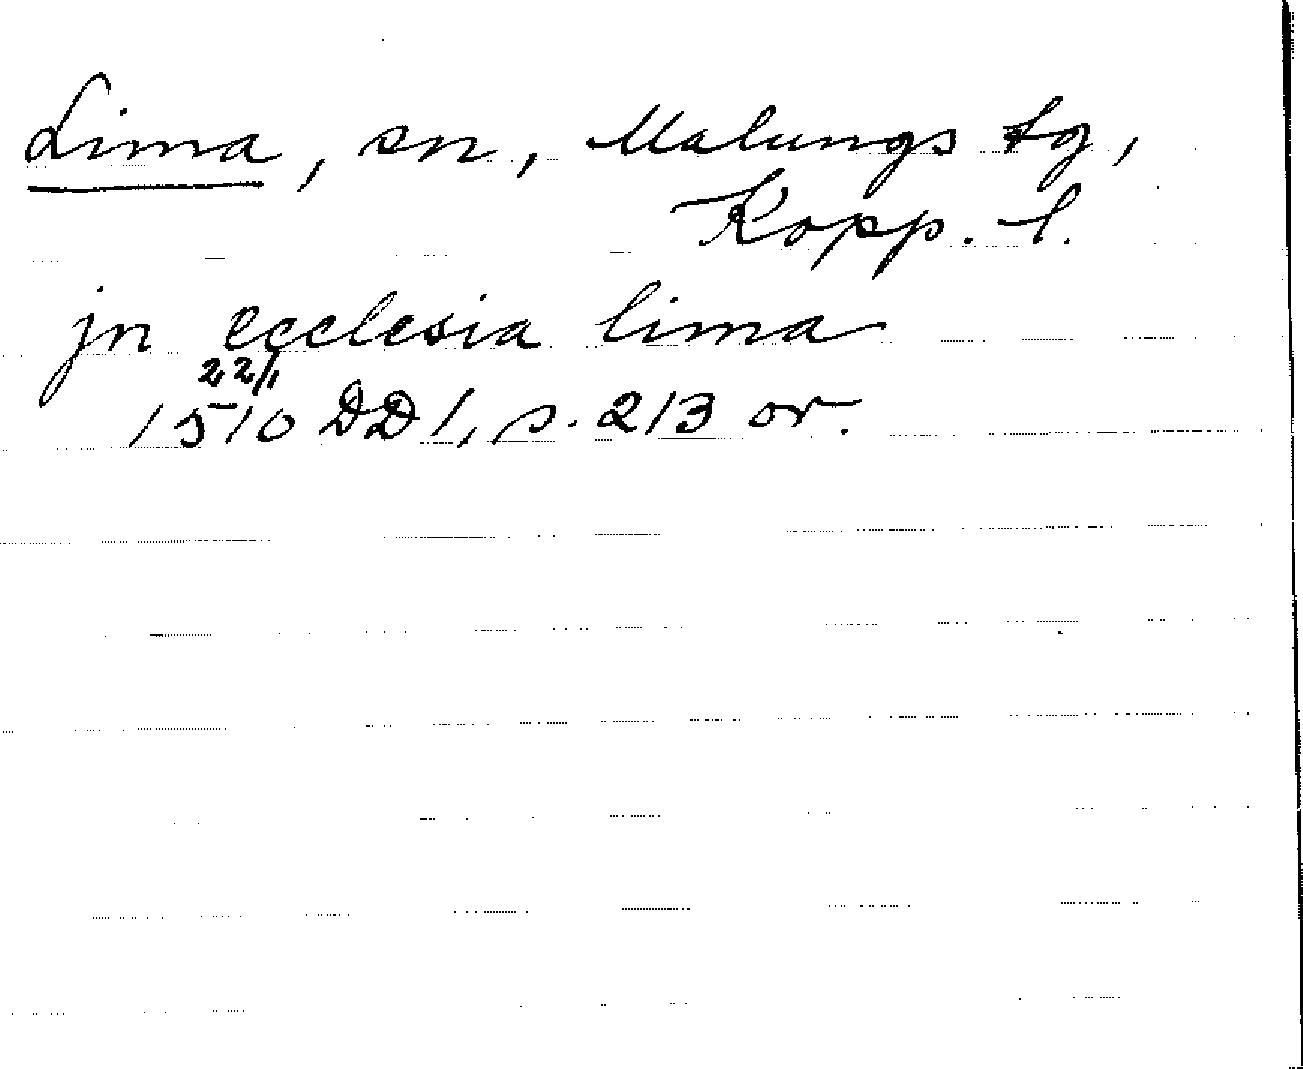 Lima, sn, Malungs tg,
Kopp. l.
jn ecclesia lima
22/1
1510 DD 1, s. 213 or.